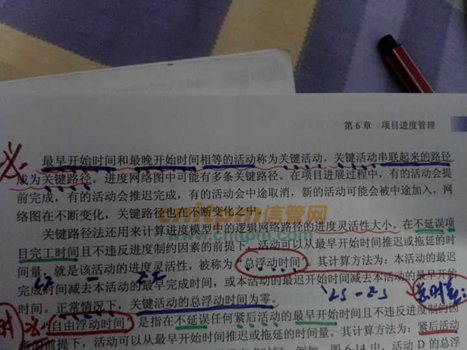 第6章 项目进度管理
最早开始时间和最晚开始时间相等的活动称为关键活动，关键活动串联起来的路径
成为关键路径。进度网络图中可能有多条关键路径。在项目进展过程中，有的活动会提
前完成，有的活动会推迟完成，有的活动会中途取消，新的活动可能会被中途加入，网
络图在不断变化，关键路径也在不断变化之中。
关键路径法还用来计算进度模型中的逻辑网络路径的进度灵活性大小。在不延误项
目完工时间且不违反进度制约因素的前提下，活动可以从最早开始时间推迟或拖延的时
间量，就是该活动的进度灵活性，被称为“总浮动时间”。其计算方法为：本活动的最迟
完成时间减去本活动的最早完成时间，或本活动的最迟开始时间减去本活动的最早开始
时间。正常情况下，关键活动的总浮动时间为零。
LS-ES
“自由浮动时间”是指在不延误任何紧后活动的最早开始时间且不违反进度制约因
素的前提下，活动可以从最早开始时间推迟或拖延的时间量。其计算方法为：紧后活动
图 6-14 中，活动 D 的总浮